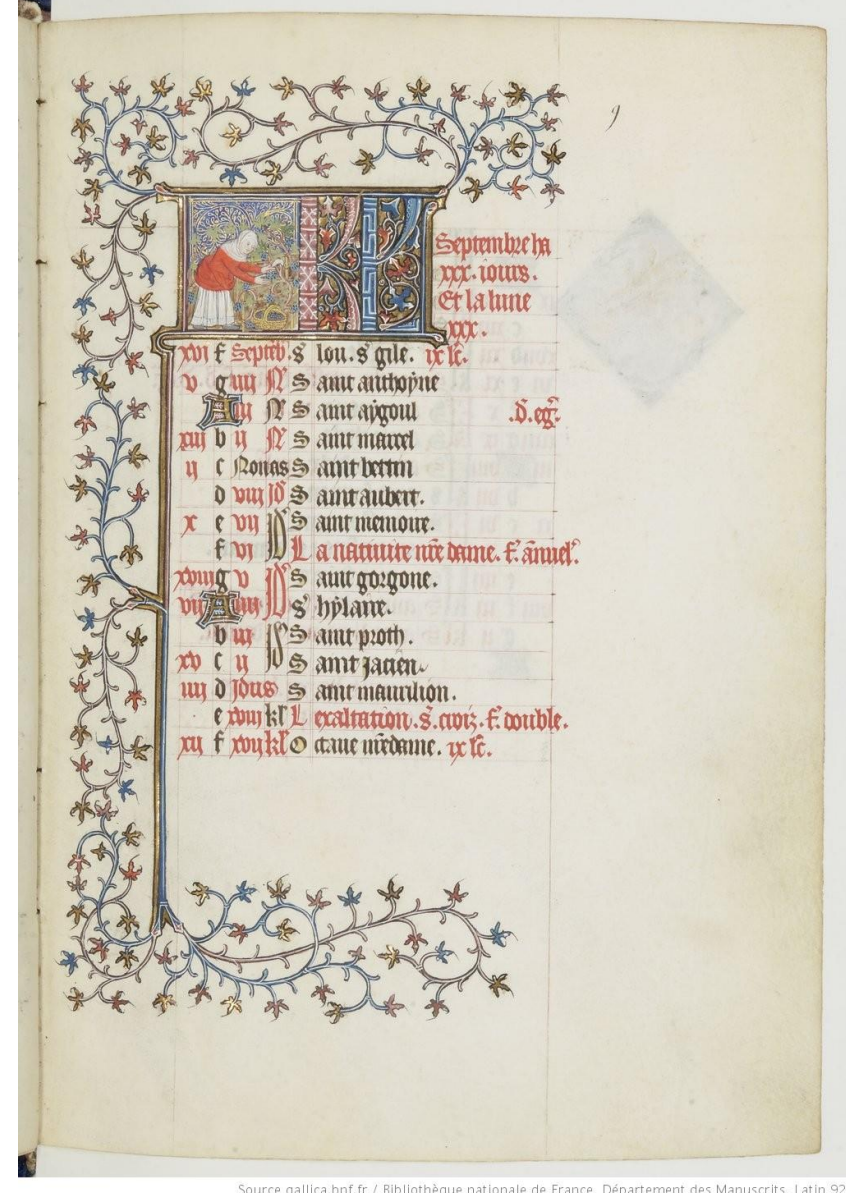 9
KL
Septembre ha
xxx. iours.
Et la lune
xxx.
xvi f Septēb. s̄ lou. s̄ gile. ix lc̄.
v g iiii N Saint anthoyne
A iii N Saint aygoul .d. eḡ.
xiii b ii N Saint marcel
ii c Nonas Saint bertin
d viii Id Saint aubert.
x e vii Id Saint memoire.
f vi Id La natiuite nr̄e dame. f. ānuel.
xviii g v Id Saint gorgone.
vii A iiii Id s̄ hylaire.
b iii Id Saint proth.
xv c ii Id Saint Jacien.
iiii d Idus Saint maurilion.
e xviii kl Lexaltation. s̄. croiz. f. double.
xii f xvii kl Octaue nr̄edame. ix lc̄.
Source gallica.bnf.fr / Bibliothèque nationale de France. Département des Manuscrits. Latin 92